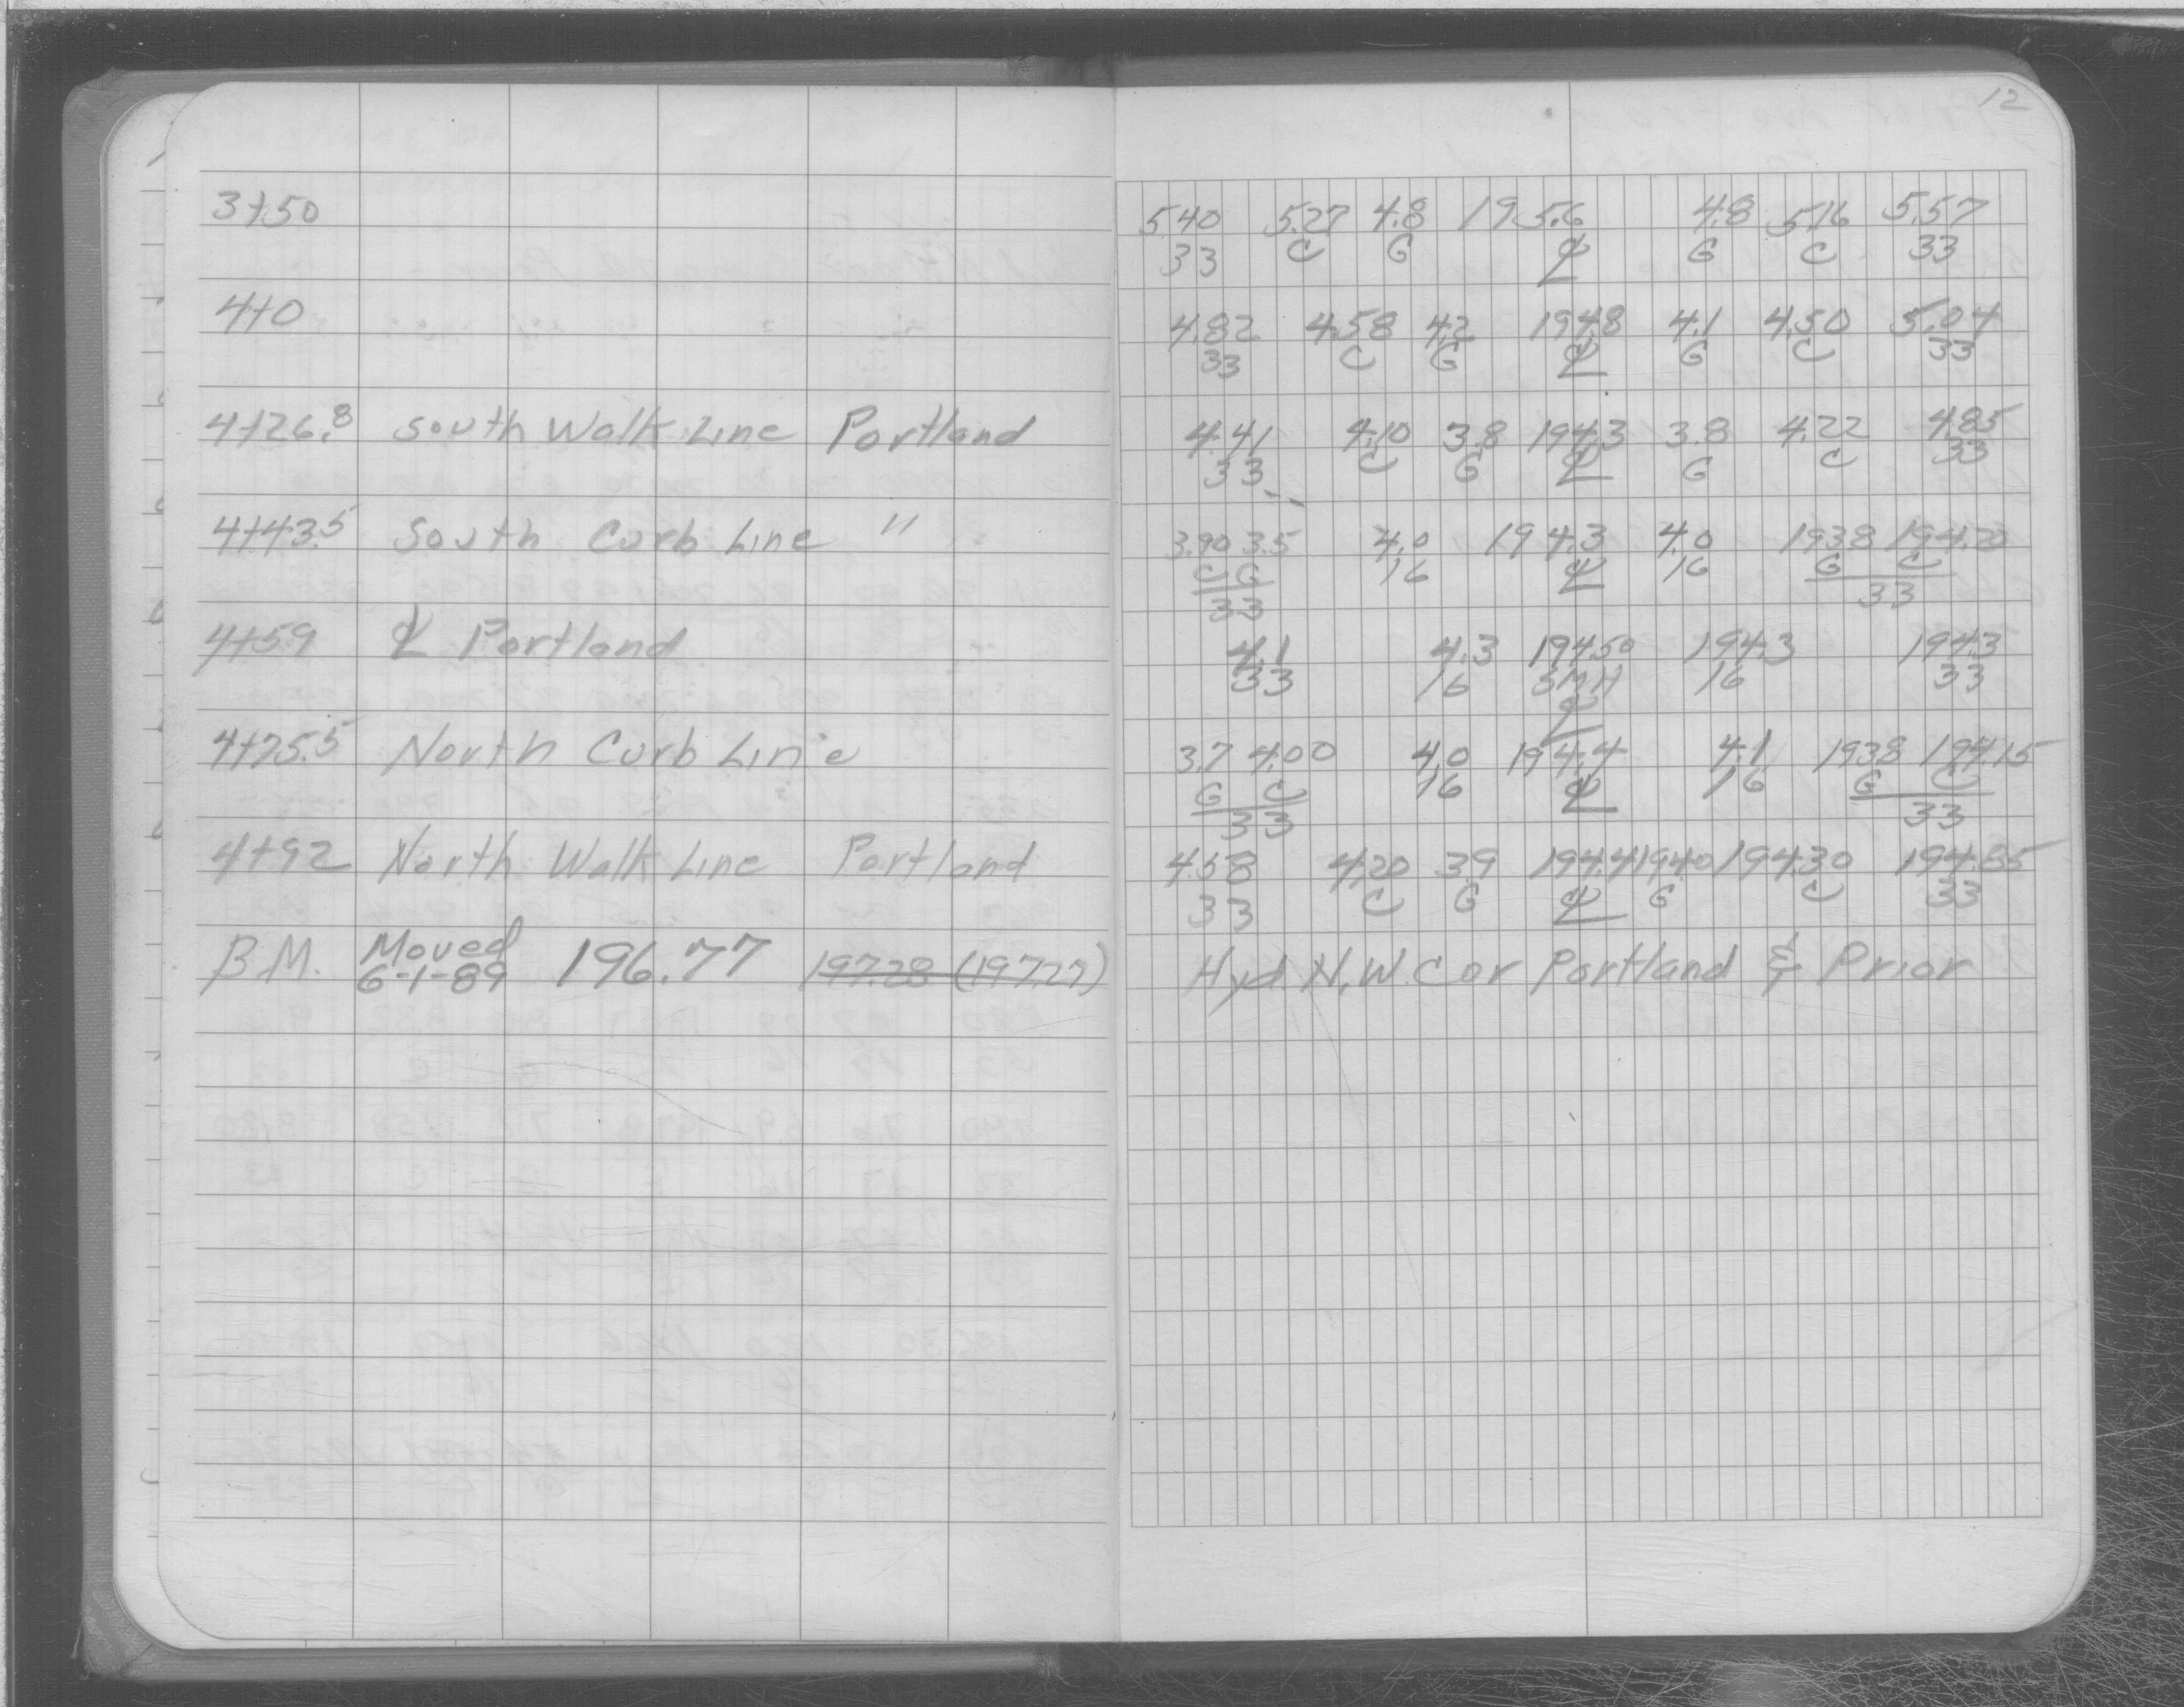 12
3+50 5.40 5.27 4.8 195.6 4.8 5.16 5.57
33 C G ℄ G C 33
4+0 4.82 4.58 4.2 194.8 4.1 4.50 5.04
33 C G ℄ G C 33
4+26.8 South Walk Line Portland 4.41 4.10 3.8 194.3 3.8 4.22 4.85
33 C G ℄ G C 33
4+43.5 South Curb Line " 3.90 3.5 4.0 194.3 4.0 193.8 194.20
C G 16 ℄ 16 G C
33 33
4+59 ℄ Portland 4.1 4.3 194.50 194.3 194.3
33 16 SMH 16 33
℄
4+75.5 North Curb Line 3.7 4.00 4.0 194.4 4.1 193.8 194.15
G C 16 ℄ 16 G C
33 33
4+92 North Walk Line Portland 4.58 4.20 3.9 194.4 194.0 194.30 194.85
33 C G ℄ G C 33
B.M. Moved 6-1-89 196.77 197.28 (197.27) Hyd N.W. Cor Portland & Prior